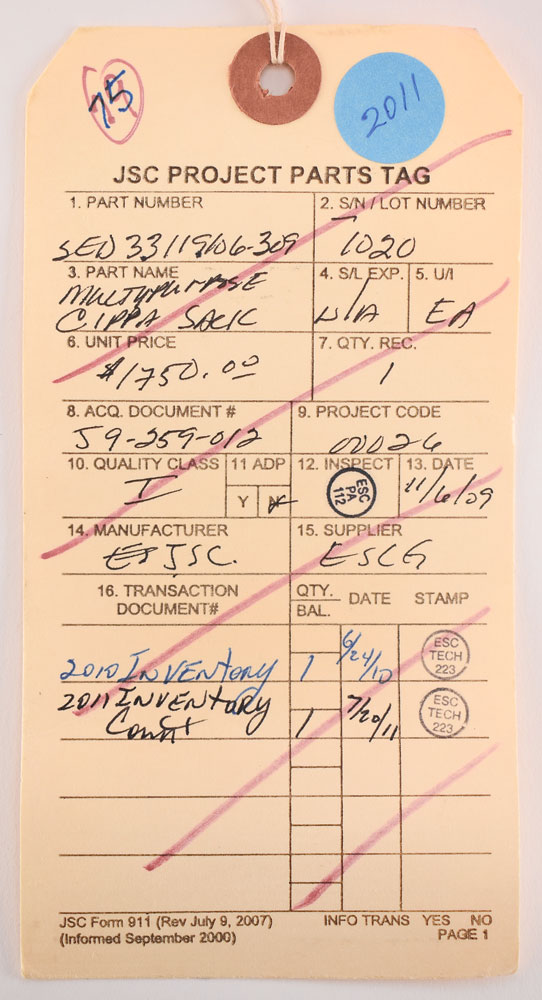 75
2011
JSC PROJECT PARTS TAG
1. PART NUMBER
2. S/N / LOT NUMBER
SED 33119106-309
1020
3. PART NAME
4. S/L EXP.
5. U/I
CIPPA SACK
N/A
EA
6. UNIT PRICE
7. QTY. REC.
$1750.00
1
8. ACQ. DOCUMENT #
9. PROJECT CODE
J9-259-012
00026
10. QUALITY CLASS
11 ADP
12. INSPECT
13. DATE
I
Y
N
ESC
PA
112
11/6/09
14. MANUFACTURER
15. SUPPLIER
JSC.
ESCG
16. TRANSACTION
DOCUMENT#
QTY.
BAL.
DATE
STAMP
2010 INVENTORY
1
6/24/10
ESC
TECH
223
2011 INVENTORY
Count
1
7/20/11
ESC
TECH
223
JSC Form 911 (Rev July 9, 2007)
INFO TRANS YES NO
(Informed September 2000)
PAGE 1